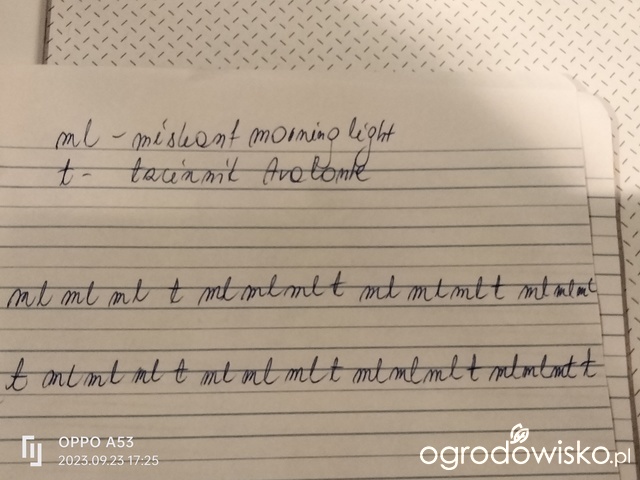 ml - miskant morning light
t - trzcinnik Avalanche
ml ml ml t ml ml ml t ml ml ml t ml ml ml
t ml ml ml t ml ml ml t ml ml ml t ml ml ml t
OPPO A53
2023.09.23 17:25
ogrodowisko.pl